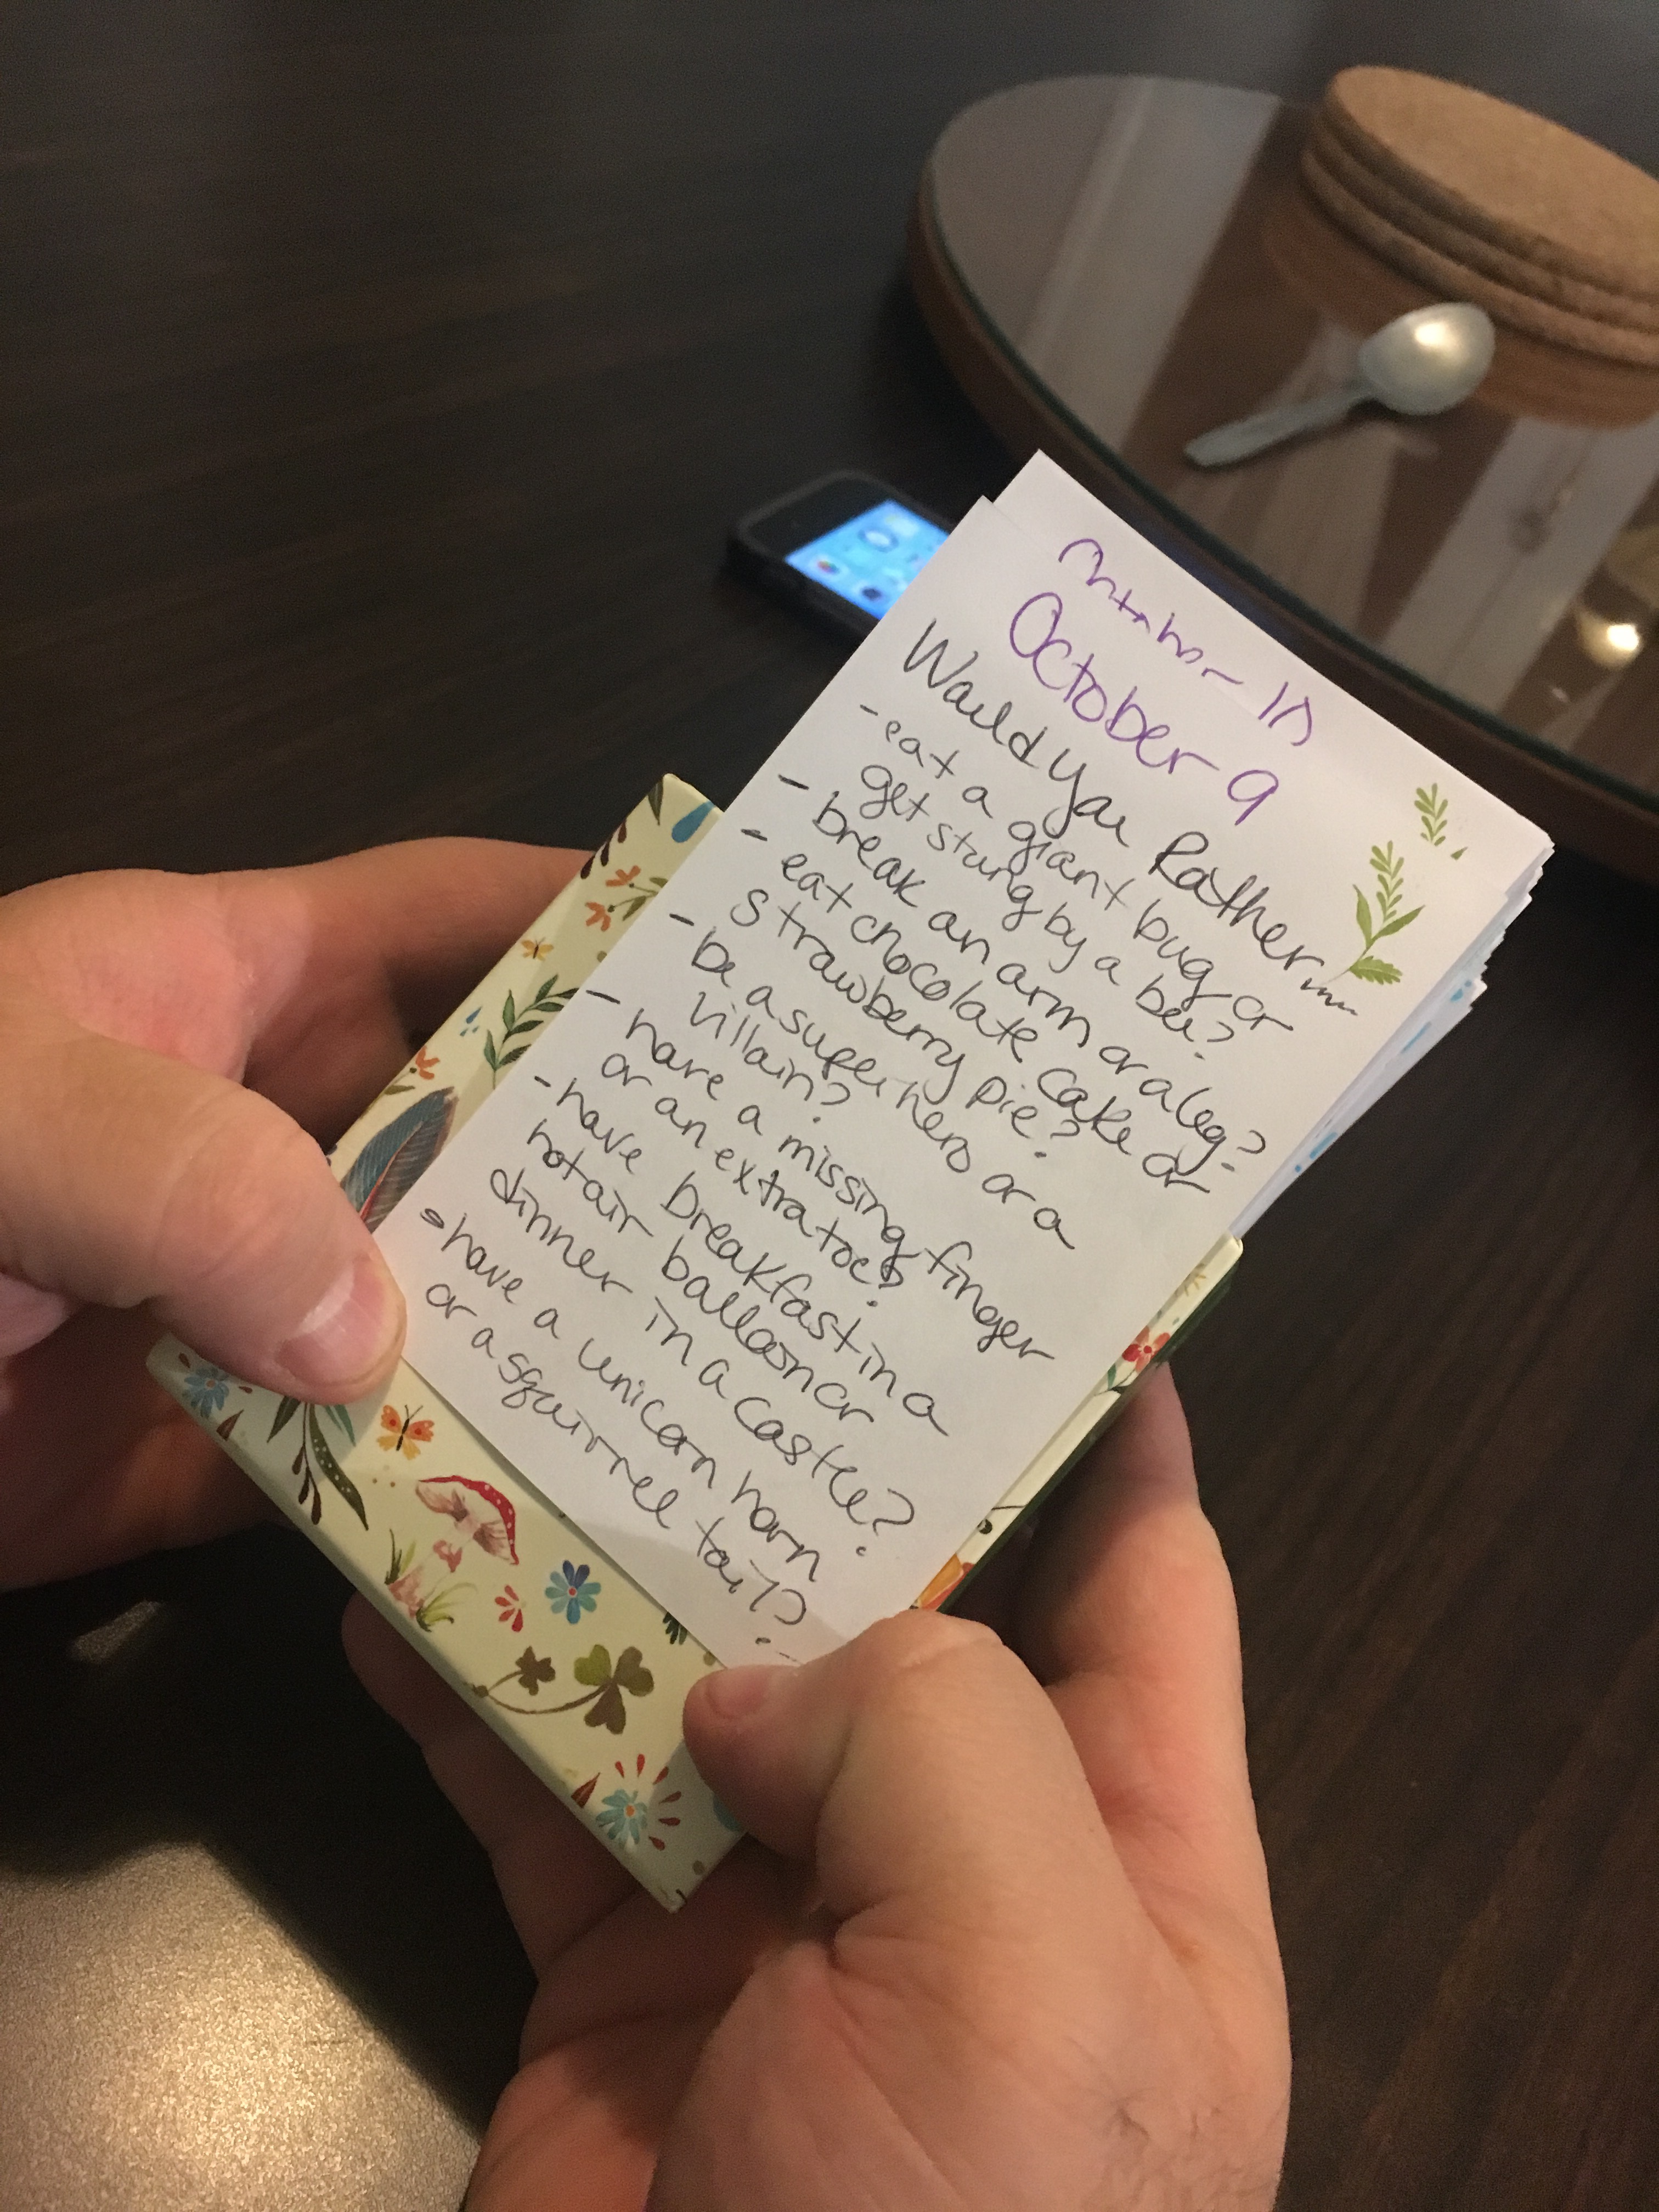 October 9
Would you Rather
- eat a giant bug or
get stung by a bee?
- break an arm or a leg?
- eat chocolate cake or
strawberry pie?
- be a superhero or a
villain?
- have a missing finger
or an extra toe?
- have breakfast in a
hot air balloon or
dinner in a castle?
- have a unicorn horn
or a squirrel tail?